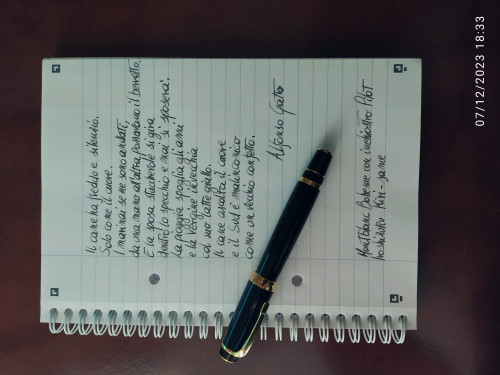 Il cane ha freddo e silenzio.
Solo come il cuore.
I marinai se ne sono andati,
da una mano all'altra portavano il berretto.
E la sposa stucchevole si gira
dentro lo specchio e mai si sposerà.
La pioggia spoglia gli anni
e la Vergine invecchia
col suo latte giallo.
Il cane ascolta il cuore
e il Sud è malinconico
come un vecchio confetto.
Alfonso Gatto
MontBlanc Boheme con inchiostro Pilot
Iroshizuku Kiri-same
07/12/2023 18:33